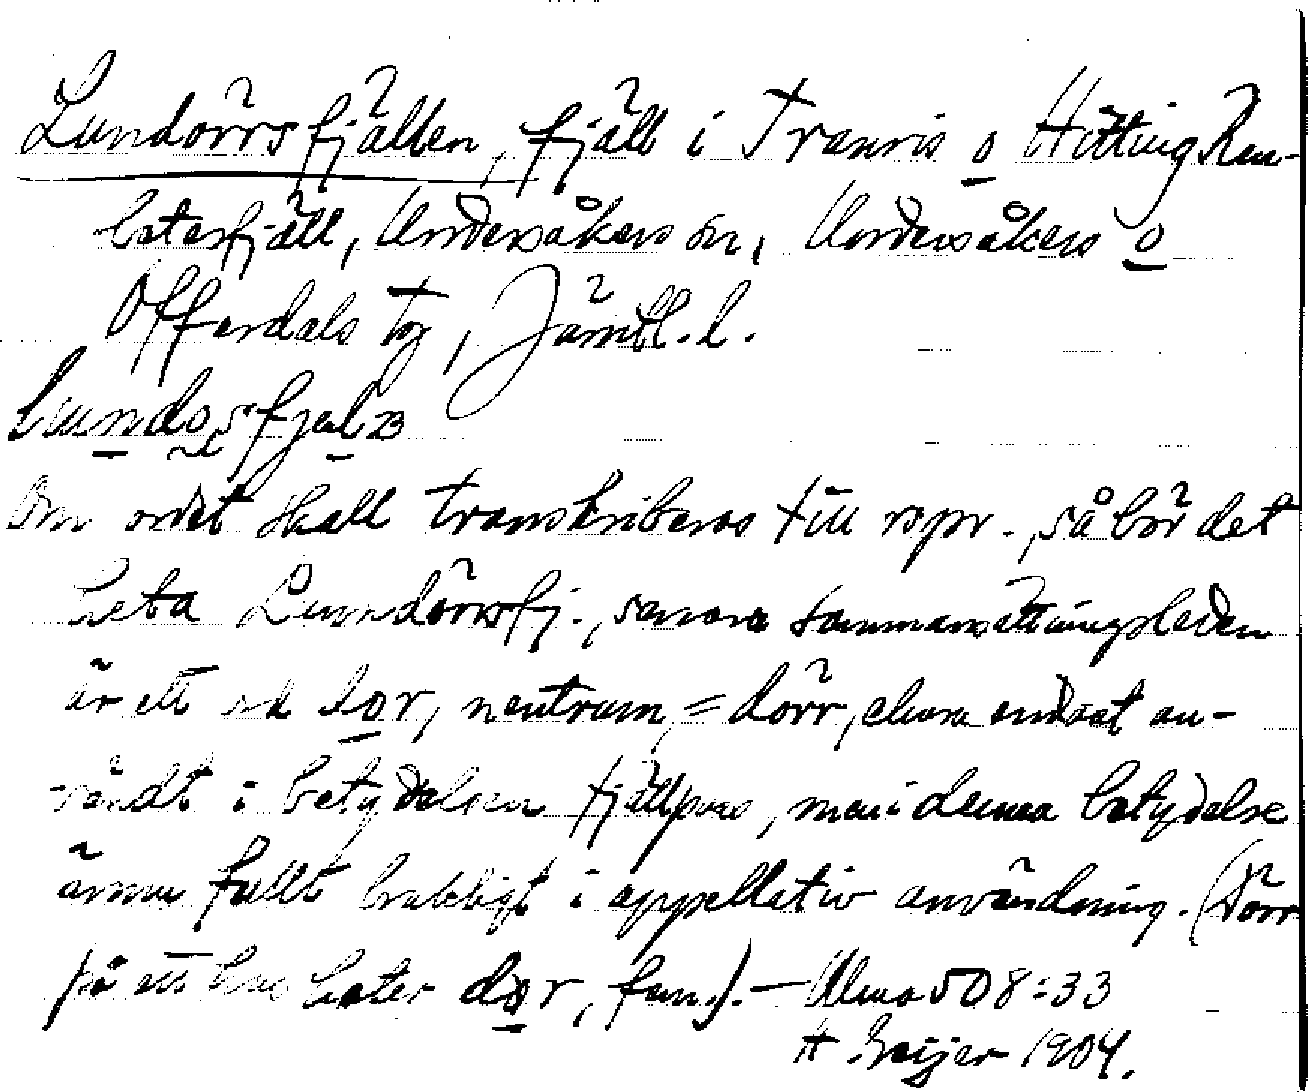 Lundörrsfjällen, fjäll i Tranris o Hötting Ren-
betesfjäll, Undersåkers sn, Undersåkers o
Offerdals tg, Jämtl. l.
Om ordet skall transkriberas till rspr., så bör det
heta Lunndörrsfj., senare sammansättningsleden
är ett ord dor, neutrum, = dörr, ehuru endast an-
vändt i betydelsen fjällpass, men i denna betydelse
ännu fullt brukligt i appellativ användning. (Dörr
på ett hus heter dør, fem.). — Ulma 508:33
H. Geijer 1904.